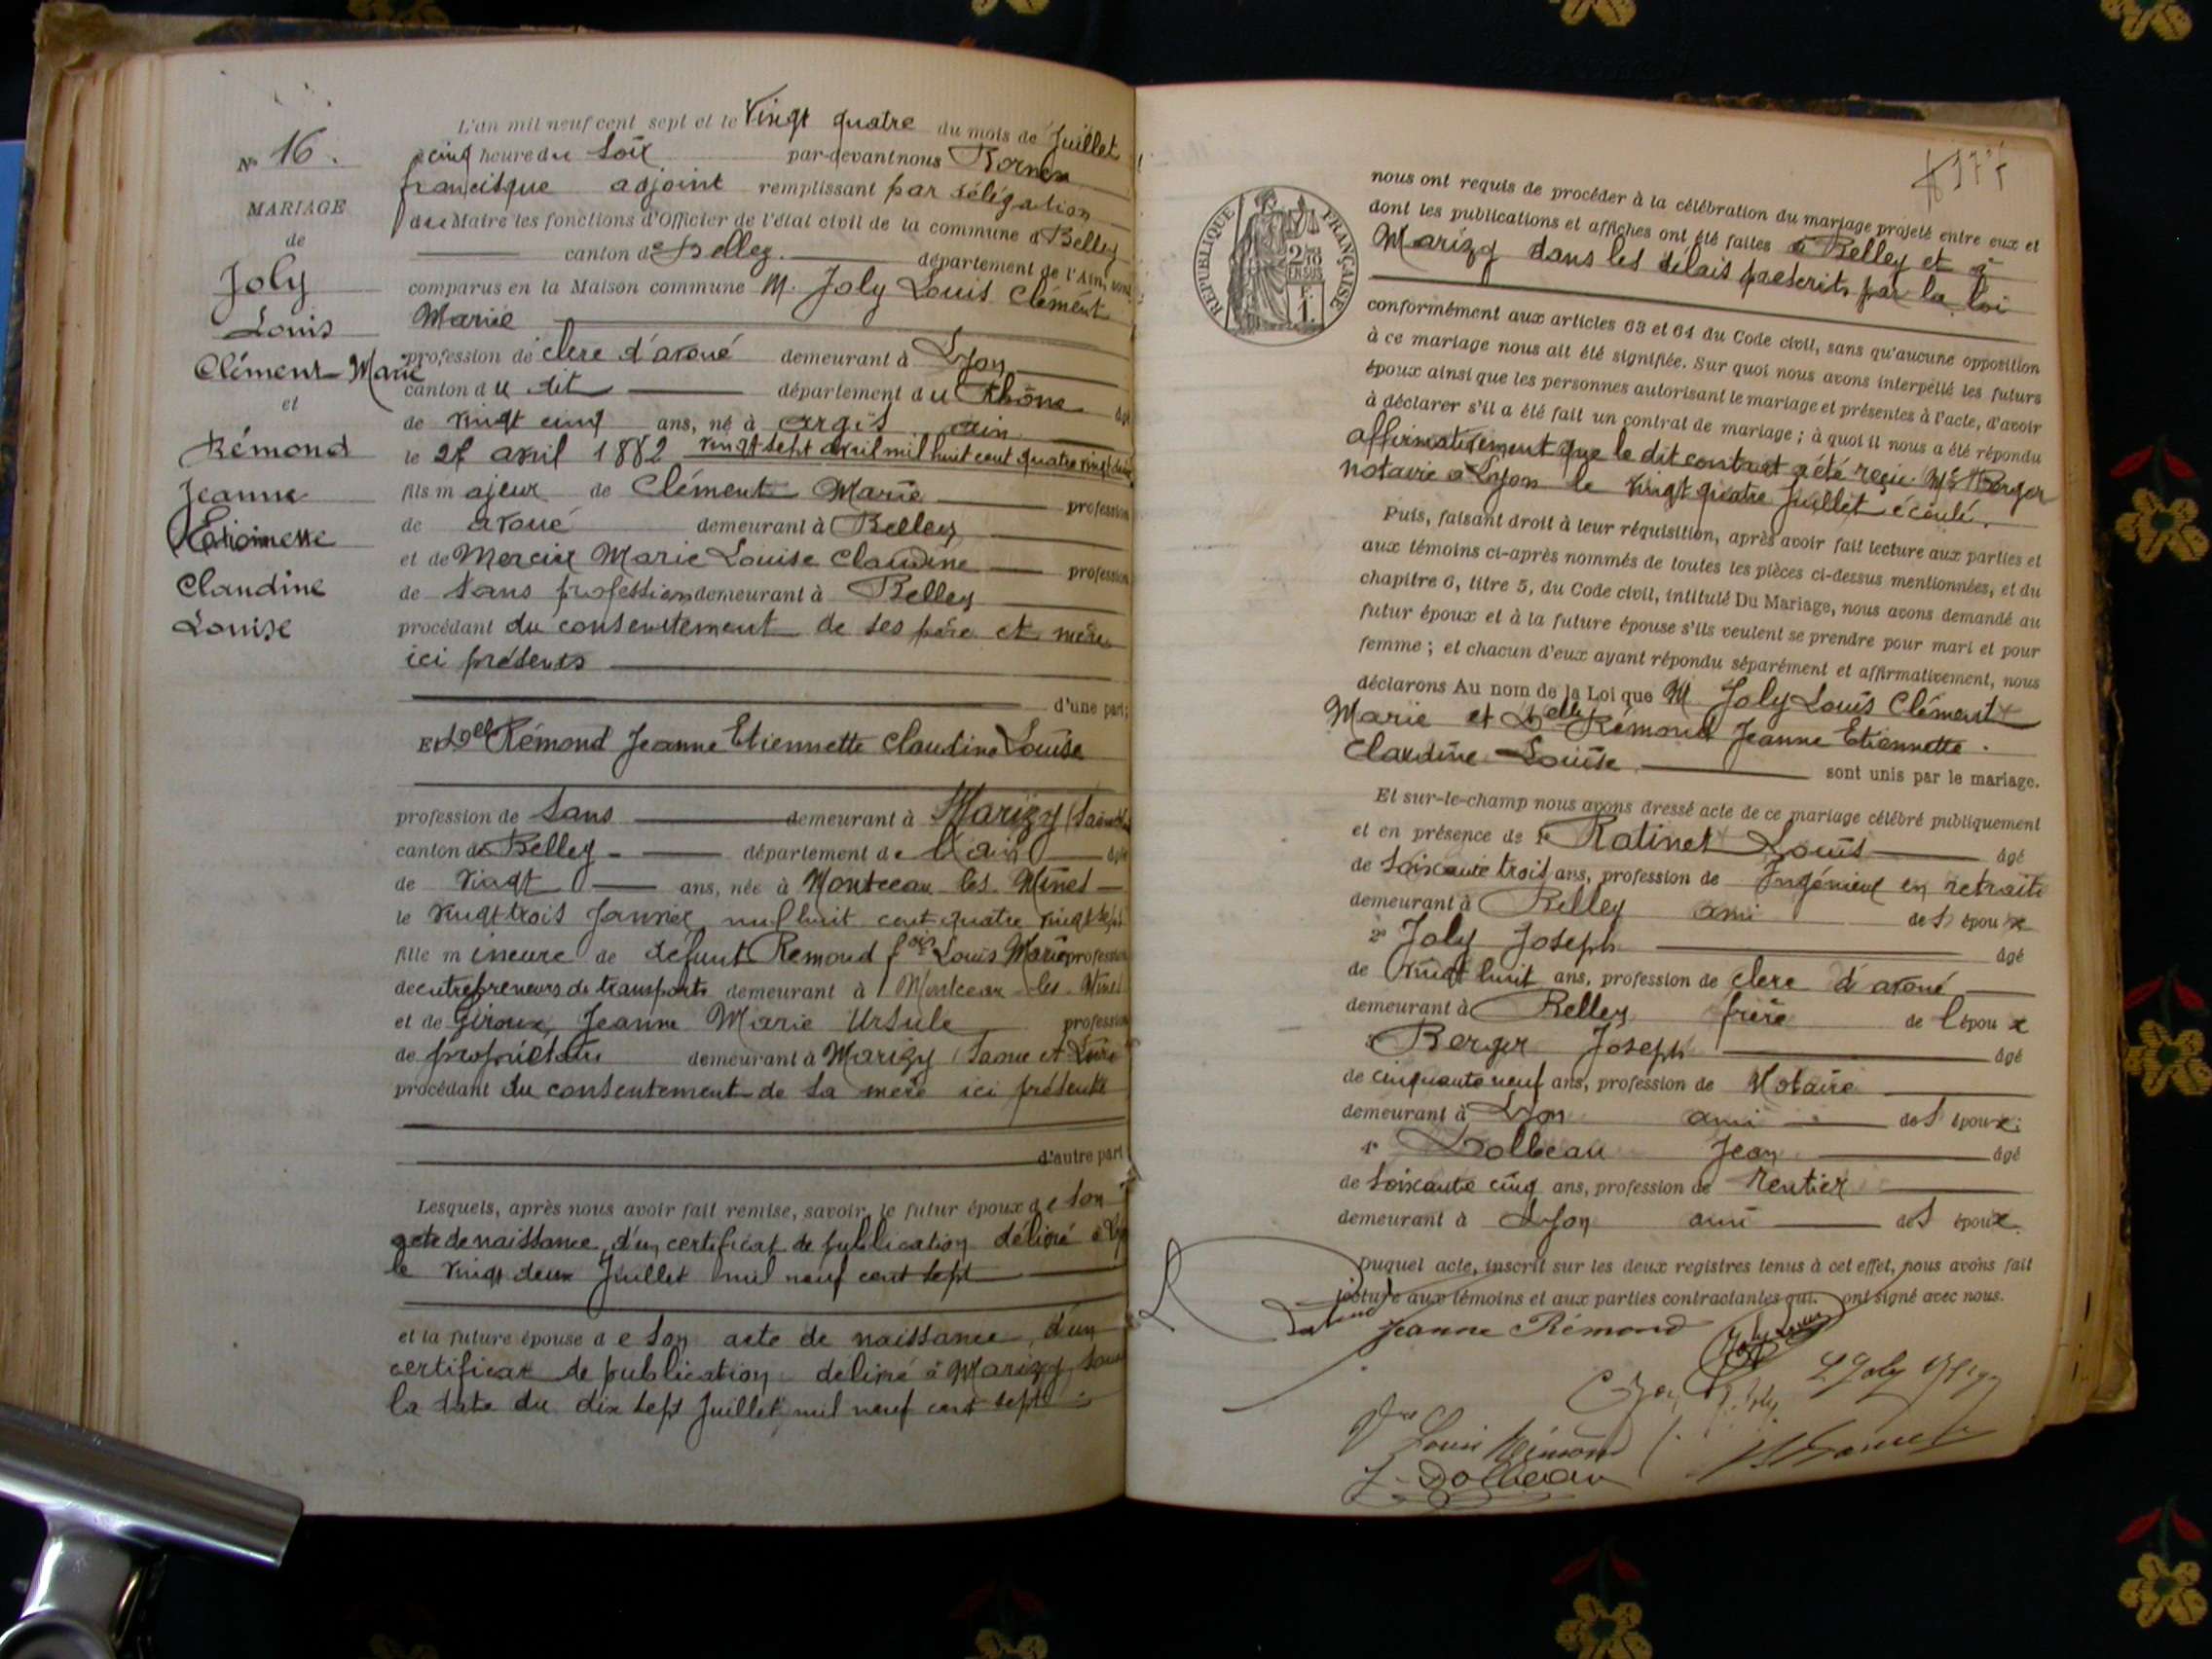 N° 16.
MARIAGE
de
Joly
Louis
Clément Marie
et
Rémond
Jeanne
Etiennette
Claudine
Louise
L'an mil neuf cent sept et le Vingt quatre du mois de Juillet
cinq heure du soir par-devant nous
francisque adjoint remplissant par délégation
du Maire les fonctions d'Officier de l'état civil de la commune d Belley
canton de Belley. département de l'Ain, sont
comparus en la Maison commune M. Joly Louis Clément
Marie
profession de clerc d'avoué demeurant à Lyon
canton du dit département du Rhône âgé
de vingt cinq ans, né à argis ain
le 27 avril 1882 vingt sept avril mil huit cent quatre vingt deux
fils majeur de Clément Marie profession
de avoué demeurant à Belley
et de Mercier Marie Louise Claudine profession
de sans profession demeurant à Belley
procédant du consentement de ses père et mère
ici présents
d'une part;
Et Delle Rémond Jeanne Etiennette Claudine Louise
profession de sans demeurant à Marizy
canton de Belley département de l'ain âgée
de vingt ans, née à Montceau les Mines
le vingt trois Janvier mil huit cent quatre vingt sept
fille mineure de défunt Remond fois Louis Marie profession
de entrepreneurs de transports demeurant à Montceau les Mines
et de Giroux Jeanne Marie Ursule profession
de propriétaire demeurant à Marizy Saone et Loire
procédant du consentement de sa mère ici présente
d'autre part
Lesquels, après nous avoir fait remise, savoir, le futur époux de son
acte de naissance, d'un certificat de publication délivré à
le vingt deux Juillet mil neuf cent sept
et la future épouse de son acte de naissance, d'un
certificat de publication délivré à Marizy sous
la date du dix sept Juillet mil neuf cent sept
RÉPUBLIQUE FRANÇAISE
2/10
EN SUS
F.
1.
nous ont requis de procéder à la célébration du mariage projeté entre eux et
dont les publications et affiches ont été faites à Belley et à
Marizy dans les délais prescrits par la loi
conformément aux articles 63 et 64 du Code civil, sans qu'aucune opposition
à ce mariage nous ait été signifiée. Sur quoi nous avons interpellé les futurs
époux ainsi que les personnes autorisant le mariage et présentes à l'acte, d'avoir
à déclarer s'il a été fait un contrat de mariage; à quoi il nous a été répondu
affirmativement que le dit contrat a été reçu Me Berger
notaire à Lyon le vingt quatre Juillet écoulé.
Puis, faisant droit à leur réquisition, après avoir fait lecture aux parties et
aux témoins ci-après nommés de toutes les pièces ci-dessus mentionnées, et du
chapitre 6, titre 5, du Code civil, intitulé Du Mariage, nous avons demandé au
futur époux et à la future épouse s'ils veulent se prendre pour mari et pour
femme; et chacun d'eux ayant répondu séparément et affirmativement, nous
déclarons Au nom de la Loi que M Joly Louis Clément
Marie et Delle Rémond Jeanne Etiennette
Claudine Louise sont unis par le mariage.
Et sur-le-champ nous avons dressé acte de ce mariage célébré publiquement
et en présence de 1° Ratinet Louis âgé
de soixante trois ans, profession de Ingénieur en retraite
demeurant à Belley ami des époux
2° Joly Joseph âgé
de vingt huit ans, profession de clerc d'avoué
demeurant à Belley frère de l'époux
3° Berger Joseph âgé
de cinquante neuf ans, profession de Notaire
demeurant à Lyon ami des époux;
4° Dolbeau Jean âgé
de soixante cinq ans, profession de Rentier
demeurant à Lyon ami des époux
Duquel acte, inscrit sur les deux registres tenus à cet effet, nous avons fait
lecture aux témoins et aux parties contractantes qui ont signé avec nous.
Jeanne Rémond
Joly
Louis Rémond
J. Dolbeau